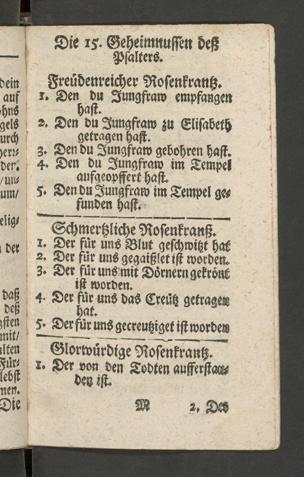 Die 15. Geheimnussen deß
Psalters.
Freüdenreicher Rosenkrantz.
1. Den du Jungfraw empfangen
hast.
2. Den du Jungfraw zu Elisabeth
getragen hast.
3. Den du Jungfraw gebohren hast.
4. Den du Jungfraw im Tempel
aufgeopffert hast.
5. Den du Jungfraw im Tempel ge-
funden hast.
Schmertzliche Rosenkrantz.
1. Der für uns Blut geschwitzt hat
2. Der für uns gegaißlet ist worden.
3. Der für uns mit Dörnern gekrönt
ist worden.
4. Der für uns das Creütz getragen
hat.
5. Der für uns gecreutziget ist worden
Glorwürdige Rosenkrantz.
1. Der von den Todten aufferstan-
den ist.
M 2. Der
dein
auf
ohns
gels
urch
der.
/uns
um/
elig-
n der
daß
deß
gsten
mit/
alten
Für-
lebst
men.
Die